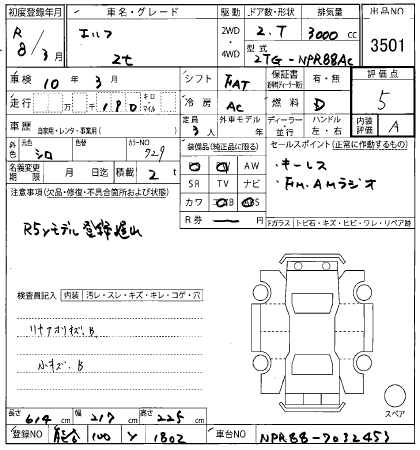 初度登録年月 車名・グレード 駆動 ドア数・形状 排気量 出品NO
R 8/3月 エルフ 2WD・4WD 2.T 3000cc 3501
2t 型式 2TG-NPR88AC
車検 10年3月 シフト FAT 保証書 有・無 評価点
走行 万 千 190 キロ・マイル 冷房 AC 燃料 D 5
車歴 自家用・レンタ・事業用( ) 定員 3人 外車モデル 年 ディーラー・並行 ハンドル 左・右 内装評価 A
外色 シロ 元色 色替 カラーNO 729 装備品(純正品に限る) セールスポイント(正常に作動するもの)
名義変更期限 年 月 積載量 2t AW ・キーレス
SR TV ナビ ・FM.AMラジオ
注意事項(欠品・修復・不具合箇所および状態) カワ
R券 ー Fガラス トビ石・キズ・ヒビ・ワレ・リペア跡
R5yモデル登録遅れ
検査員記入 内装 汚レ・スレ・キズ・キレ・コゲ・穴
リヤアオリキズ、B
小キズ、B
スペア
長さ 614cm 幅 217cm 高さ 225cm
登録NO 100 1802 車台NO NPR88-7032453